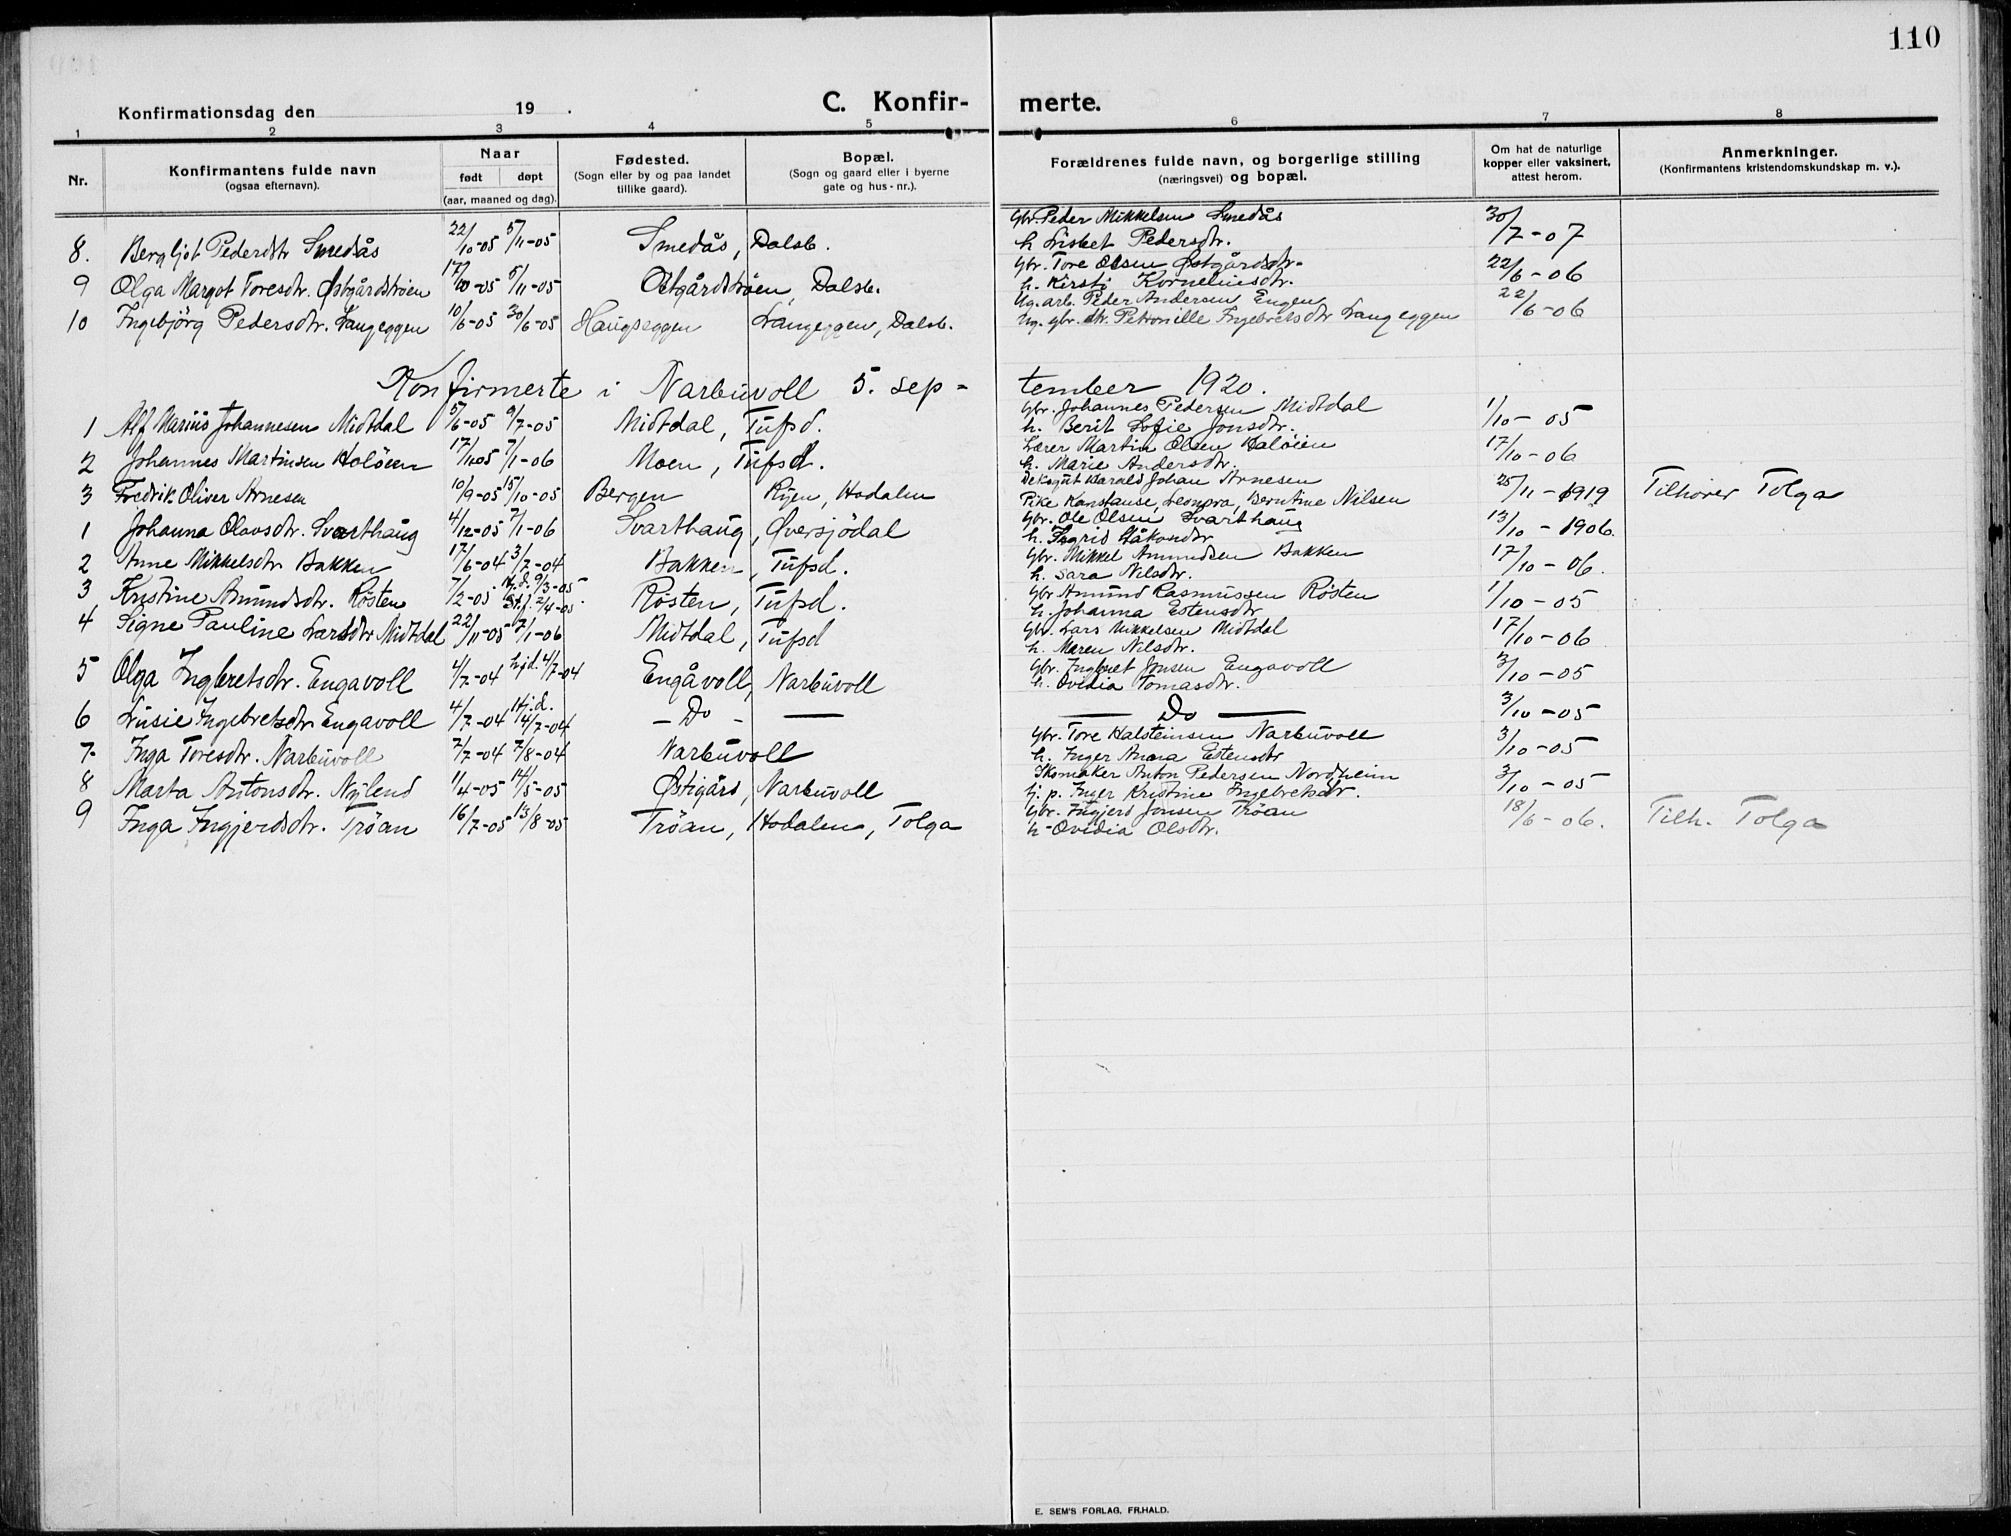 110
Konfirmationsdag den 19 .
C. Konfir- merte.
1 2 3 4 5 6 7 8
Nr.
Konfirmantens fulde navn
(ogsaa efternavn).
Naar
født døpt
(aar, maaned og dag).
Fødested.
(Sogn eller by og paa landet
tillike gaard).
Bopæl.
(Sogn og gaard eller i byerne
gate og hus-nr.).
Forældrenes fulde navn, og borgerlige stilling
(næringsvei) og bopæl.
Om hat de naturlige
kopper eller vaksinert,
attest herom.
Anmerkninger.
(Konfirmantens kristendomskundskap m. v.).
8. Bergljot Pedersdtr Smedås 22/10-05 5/11-05 Smedås, Dalsb. Gbr. Peder Mikkelsen Smedås 30/7-07
h Lisbet Pedersdtr.
9 Olga Margot Toresdtr. Østgårdstrøen 17/10-05 5/11-05 Østgårdstrøen, Dalsb. Gbr. Tore Olsen Østgårdstr- 22/6-06
h. Kirsti Korneliusdtr.
10 Ingebjörg Pedersdtr. Langeggen 10/6-05 30/6-05 Haugseggen Langeggen, Dalsb. Ug. arb. Peder Andersen Engen 22/6-06
Ug. gbr. dtr. Petronille Ingebretsdtr Langeggen
Konfirmerte i Narbuvoll 5. sep- tember 1920.
1 Alf Marius Johannesen Midtdal 5/6-05 9/7-05 Midtdal, Tufsd. Gbr. Johannes Pedersen Midtdal 1/10-05
h. Berit Sofie Jonsdtr.
2 Johannes Martinsen Holöien 17/11-05 7/1-06 Moen, Tufsd. Lærer Martin Olsen Holöien 17/10-06
h. Marie Andersdtr.
3 Fredrik Oliver Arnesen 10/9-05 15/10-05 Bergen Ryen, Hodalen Deksgut Harald Johan Arnesen 25/11-1919 Tilhører Tolga
Pike Konstanse, Leonora, Berntine Nilsen
1 Johanna Olavsdtr. Svarthaug 4/12-05 7/1-06 Svarthaug, Øversjödal Gbr. Ole Olsen Svarthaug 13/10-1906.
h. Ingrid Håkonsdtr
2 Anne Mikkelsdtr Bakken 17/6-04 3/7-04 Bakken, Tufsd. Gbr. Mikkel Amundsen Bakken 17/10-06.
h. Sara Nilsdtr.
3 Kristine Amundsdtr. Røsten 7/2-05 Hj.d. 9/3-05 St.f. 2/4-05. Røsten, Tufsd. Gbr Amund Rasmussen Røsten 1/10-05
h. Johanna Estensdtr
4 Signe Pauline Larsdtr Midtdal 22/11-05 7/1-06 Midtdal, Tufsd Gbr. Lars Mikkelsen Midtdal 17/10-06
h. Maren Nilsdtr.
5 Olga Ingebretsdtr. Engavoll 4/7-04 hjd. 4/7-04 Engåvoll, Narbuvoll Gbr. Ingbret Jonsen Engavoll 3/10-05
h. Ovidia Tomasdtr.
6 Lusie Ingebretsdtr Engavoll 4/7-04 Hj.d. 4/7-04 — Do — — — Do — 3/10-05
7 Inga Toresdtr. Narbuvoll 7/7-04 7/8-04 Narbuvoll Gbr. Tore Halsteinsen Narbuvoll 3/10-05
h. Inger Anna Estensdtr
8 Marta Antonsdtr. Nylend 11/4-05 14/5-05 Østigård, Narbuvoll Skomaker Anton Pedersen Nordheim 3/10-05
Gj. p. Inger Kristine Ingebretsdtr.
9 Inga Ingjerdsdtr. Tröan 16/7-05 13/8-05 Tröan, Hodalen, Tolga Gbr. Ingjerd Jonsen Tröan 18/6-06. Tilh. Tolga
h- Ovidia Olsdtr.
E. SEM'S FORLAG, FR.HALD.